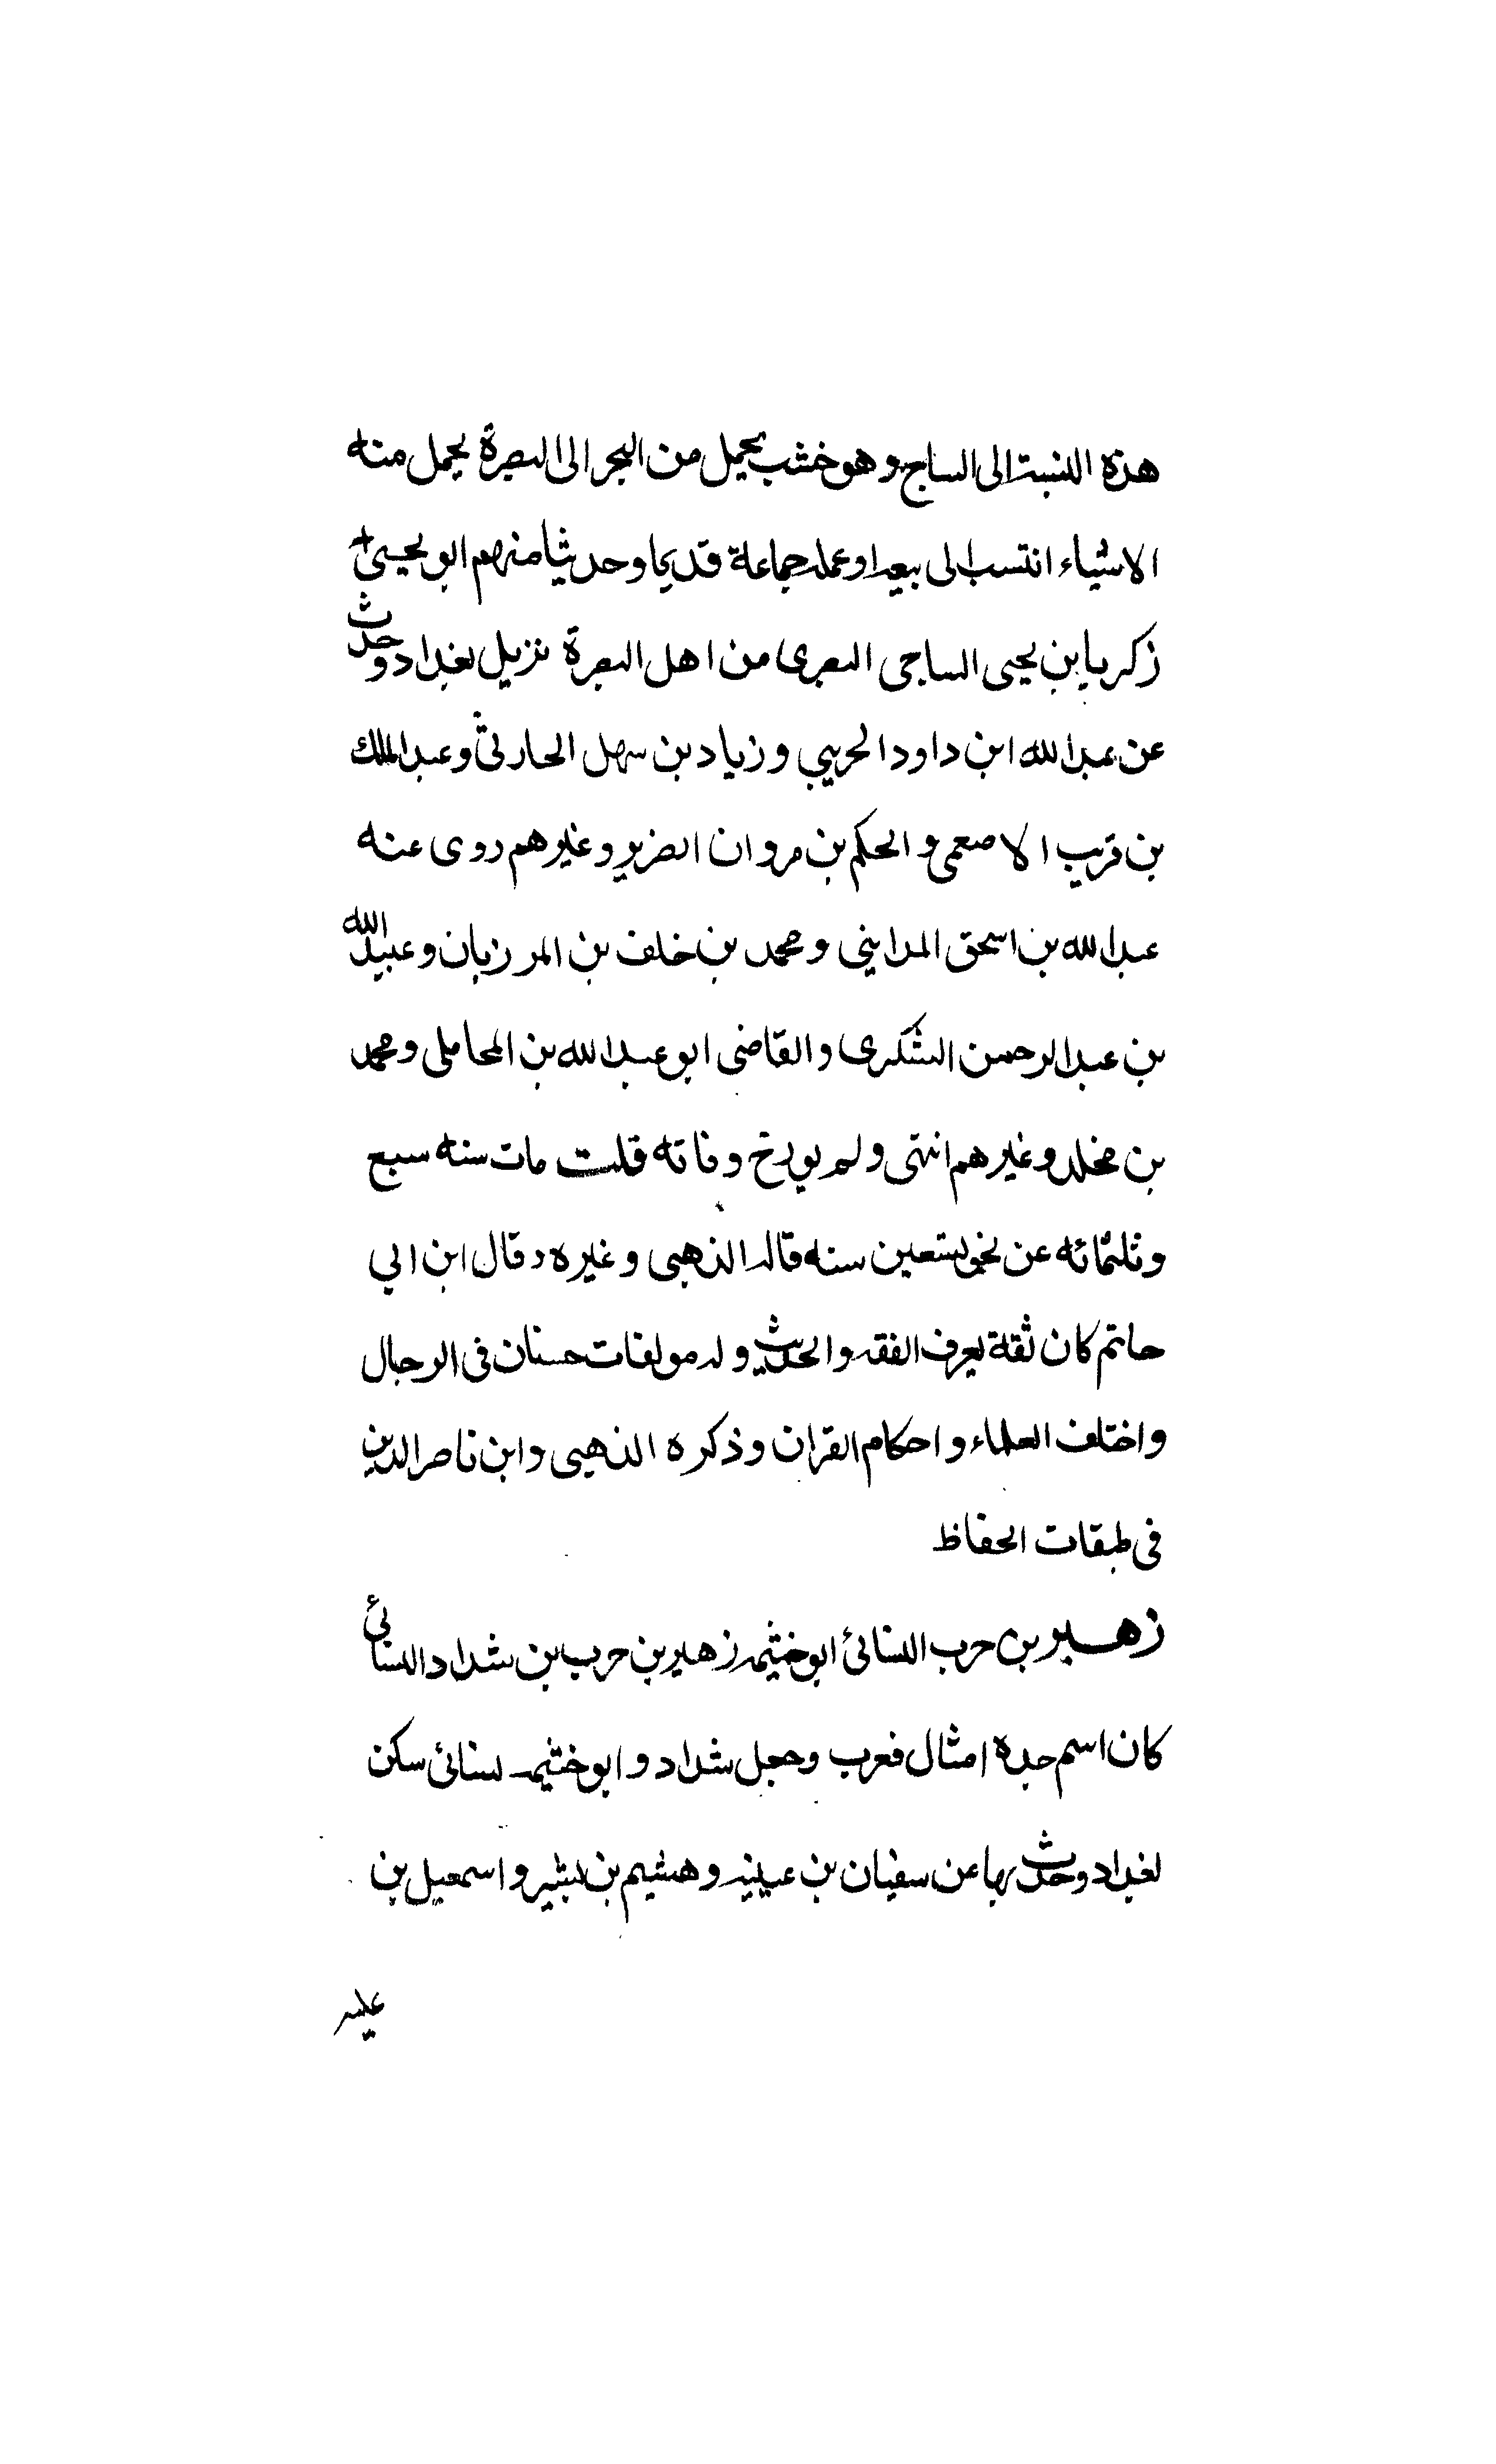 هذه النسبة الى الساج وهو خشب يحمل من البحر الى البصرة يجمل منه
الاشياء انتسب الى بيعه او عمله جماعة قديما وحديثا منهم ابو يحيى
زكريا بن يحيى الساجى البصرى من اهل البصرة نزيل بغداد وحدث
عن عبد الله ابن داود الحربيى وزياد بن سهل الحارثى وعبد الملك
بن قريب الاصمعى و الحكم بن مروان الضرير وغيرهم روى عنه
عبد الله بن اسحق المدايني ومحمد بن خلف بن المرزبان وعبيد الله
بن عبد الرحمن الشكرى والقاضى ابو عبد الله بن المحاملى ومحمد
بن مخلد وغيرهم انتهى ولم يورخ وفاته قلت مات سنه سبع
وثلثمائه عن نحو تسعين سنه قاله الذهبى وغيره وقال ابن ابي
حاتم كان ثقة يعرف الفقه والحديث وله مولفات حسنان فى الرجال
واختلف العلماء واحكام القران وذكره الذهبى وابن ناصر الدين
فى طبقات الحفاظ
زهير بن حرب النسائئ ابو خثيمه زهير بن حرب بن شداد النسائى
كان اسم جده امثال فعرب وجعل شداد وابو خثيمه نسائئ سكن
بغداد وحدث بها عن سفيان بن عيينه وهشيم بن بشير واسمعيل بن
عليه